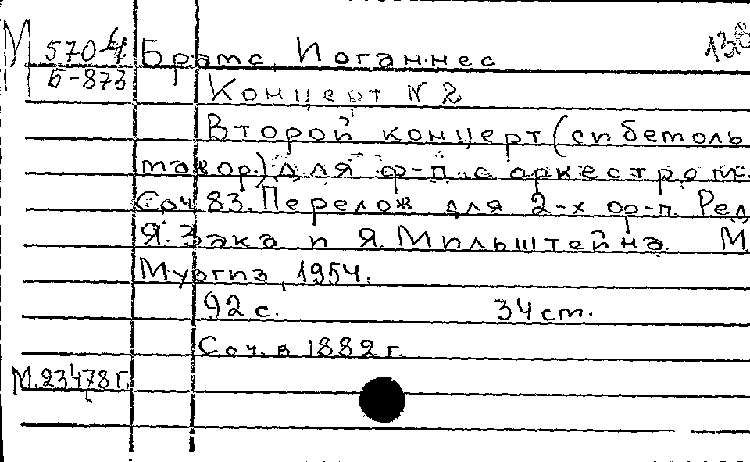 М 5704 Брамс, Иоганнес 138
Б-873
Концерт № 2
Второй концерт (си бемоль
мажор) для ф-п. с оркестром.
Соч. 83. Перелож. для 2-х ф-п. Ред.
Я. Зака и Я. Мильштейна. М
Музгиз, 1954.
92 с. 34 ст.
Соч. в 1882 г.
М.23478 г.